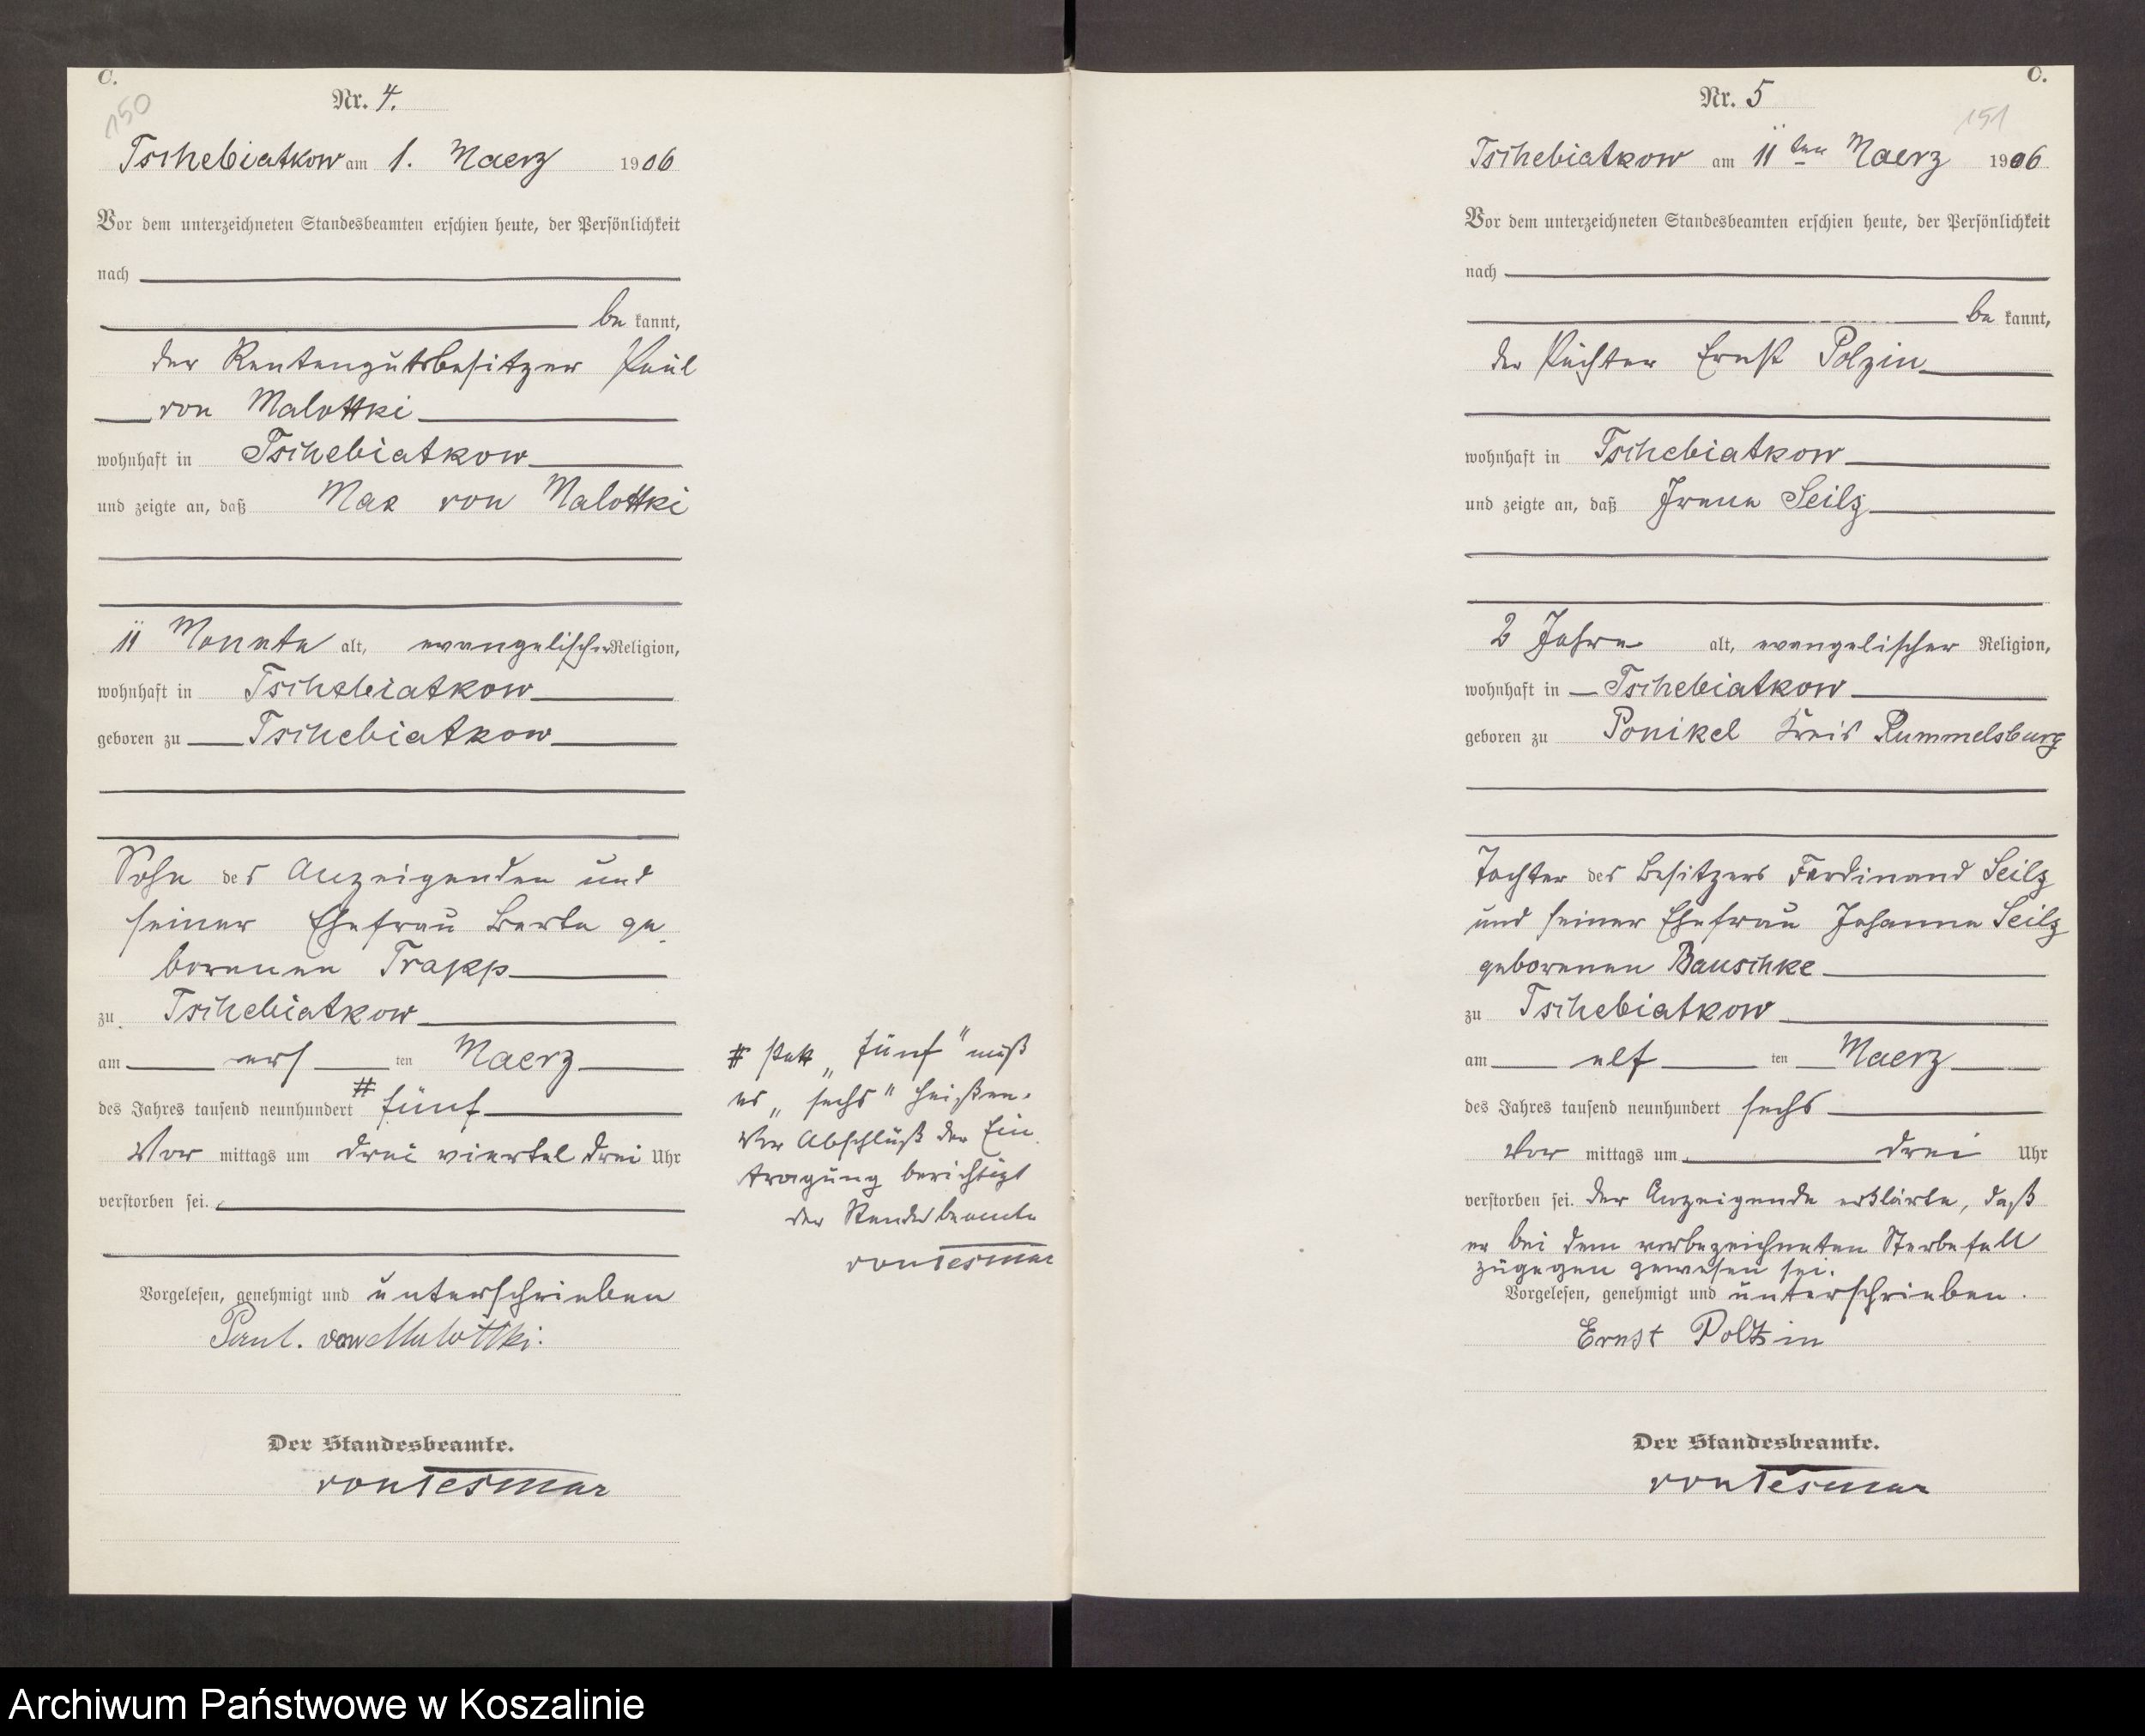 C.
150
Nr. 4.
Tschebiatkow am 1. Maerz 1906
Vor dem unterzeichneten Standesbeamten erschien heute, der Persönlichkeit
nach
be kannt,
der Rentengutsbesitzer Paul
von Malottki
wohnhaft in Tschebiatkow
und zeigte an, daß Max von Malottki
11 Monate alt, evangelischer Religion,
wohnhaft in Tschebiatkow
geboren zu Tschebiatkow
Sohn des Anzeigenden und
seiner Ehefrau Berta ge-
borenen Trapp
zu Tschebiatkow
am ers ten Maerz
des Jahres tausend neunhundert # fünf
Vor mittags um drei viertel drei Uhr
verstorben sei.
Vorgelesen, genehmigt und unterschrieben
Paul. von Malottki.
Der Standesbeamte.
von Tesmar
# statt „fünf" muß
es „sechs" heißen.
Vor Abschluß der Ein-
tragung berichtigt
der Standesbeamte
von Tesmar
C.
151
Nr. 5
Tschebiatkow am 11ten Maerz 1906
Vor dem unterzeichneten Standesbeamten erschien heute, der Persönlichkeit
nach
be kannt,
der Pächter Ernst Polzin
wohnhaft in Tschebiatkow
und zeigte an, daß Irene Seils
2 Jahre alt, evangelischer Religion,
wohnhaft in Tschebiatkow
geboren zu Ponikel Kreis Rummelsburg
Tochter des Besitzers Ferdinand Seils
und seiner Ehefrau Johanne Seils
geborenen Bauschke
zu Tschebiatkow
am elf ten Maerz
des Jahres tausend neunhundert sechs
Vor mittags um drei Uhr
verstorben sei. Der Anzeigende erklärte, daß
er bei dem vorbezeichneten Sterbefall
zugegen gewesen sei.
Vorgelesen, genehmigt und unterschrieben.
Ernst Poltzin
Der Standesbeamte.
von Tesmar
Archiwum Państwowe w Koszalinie